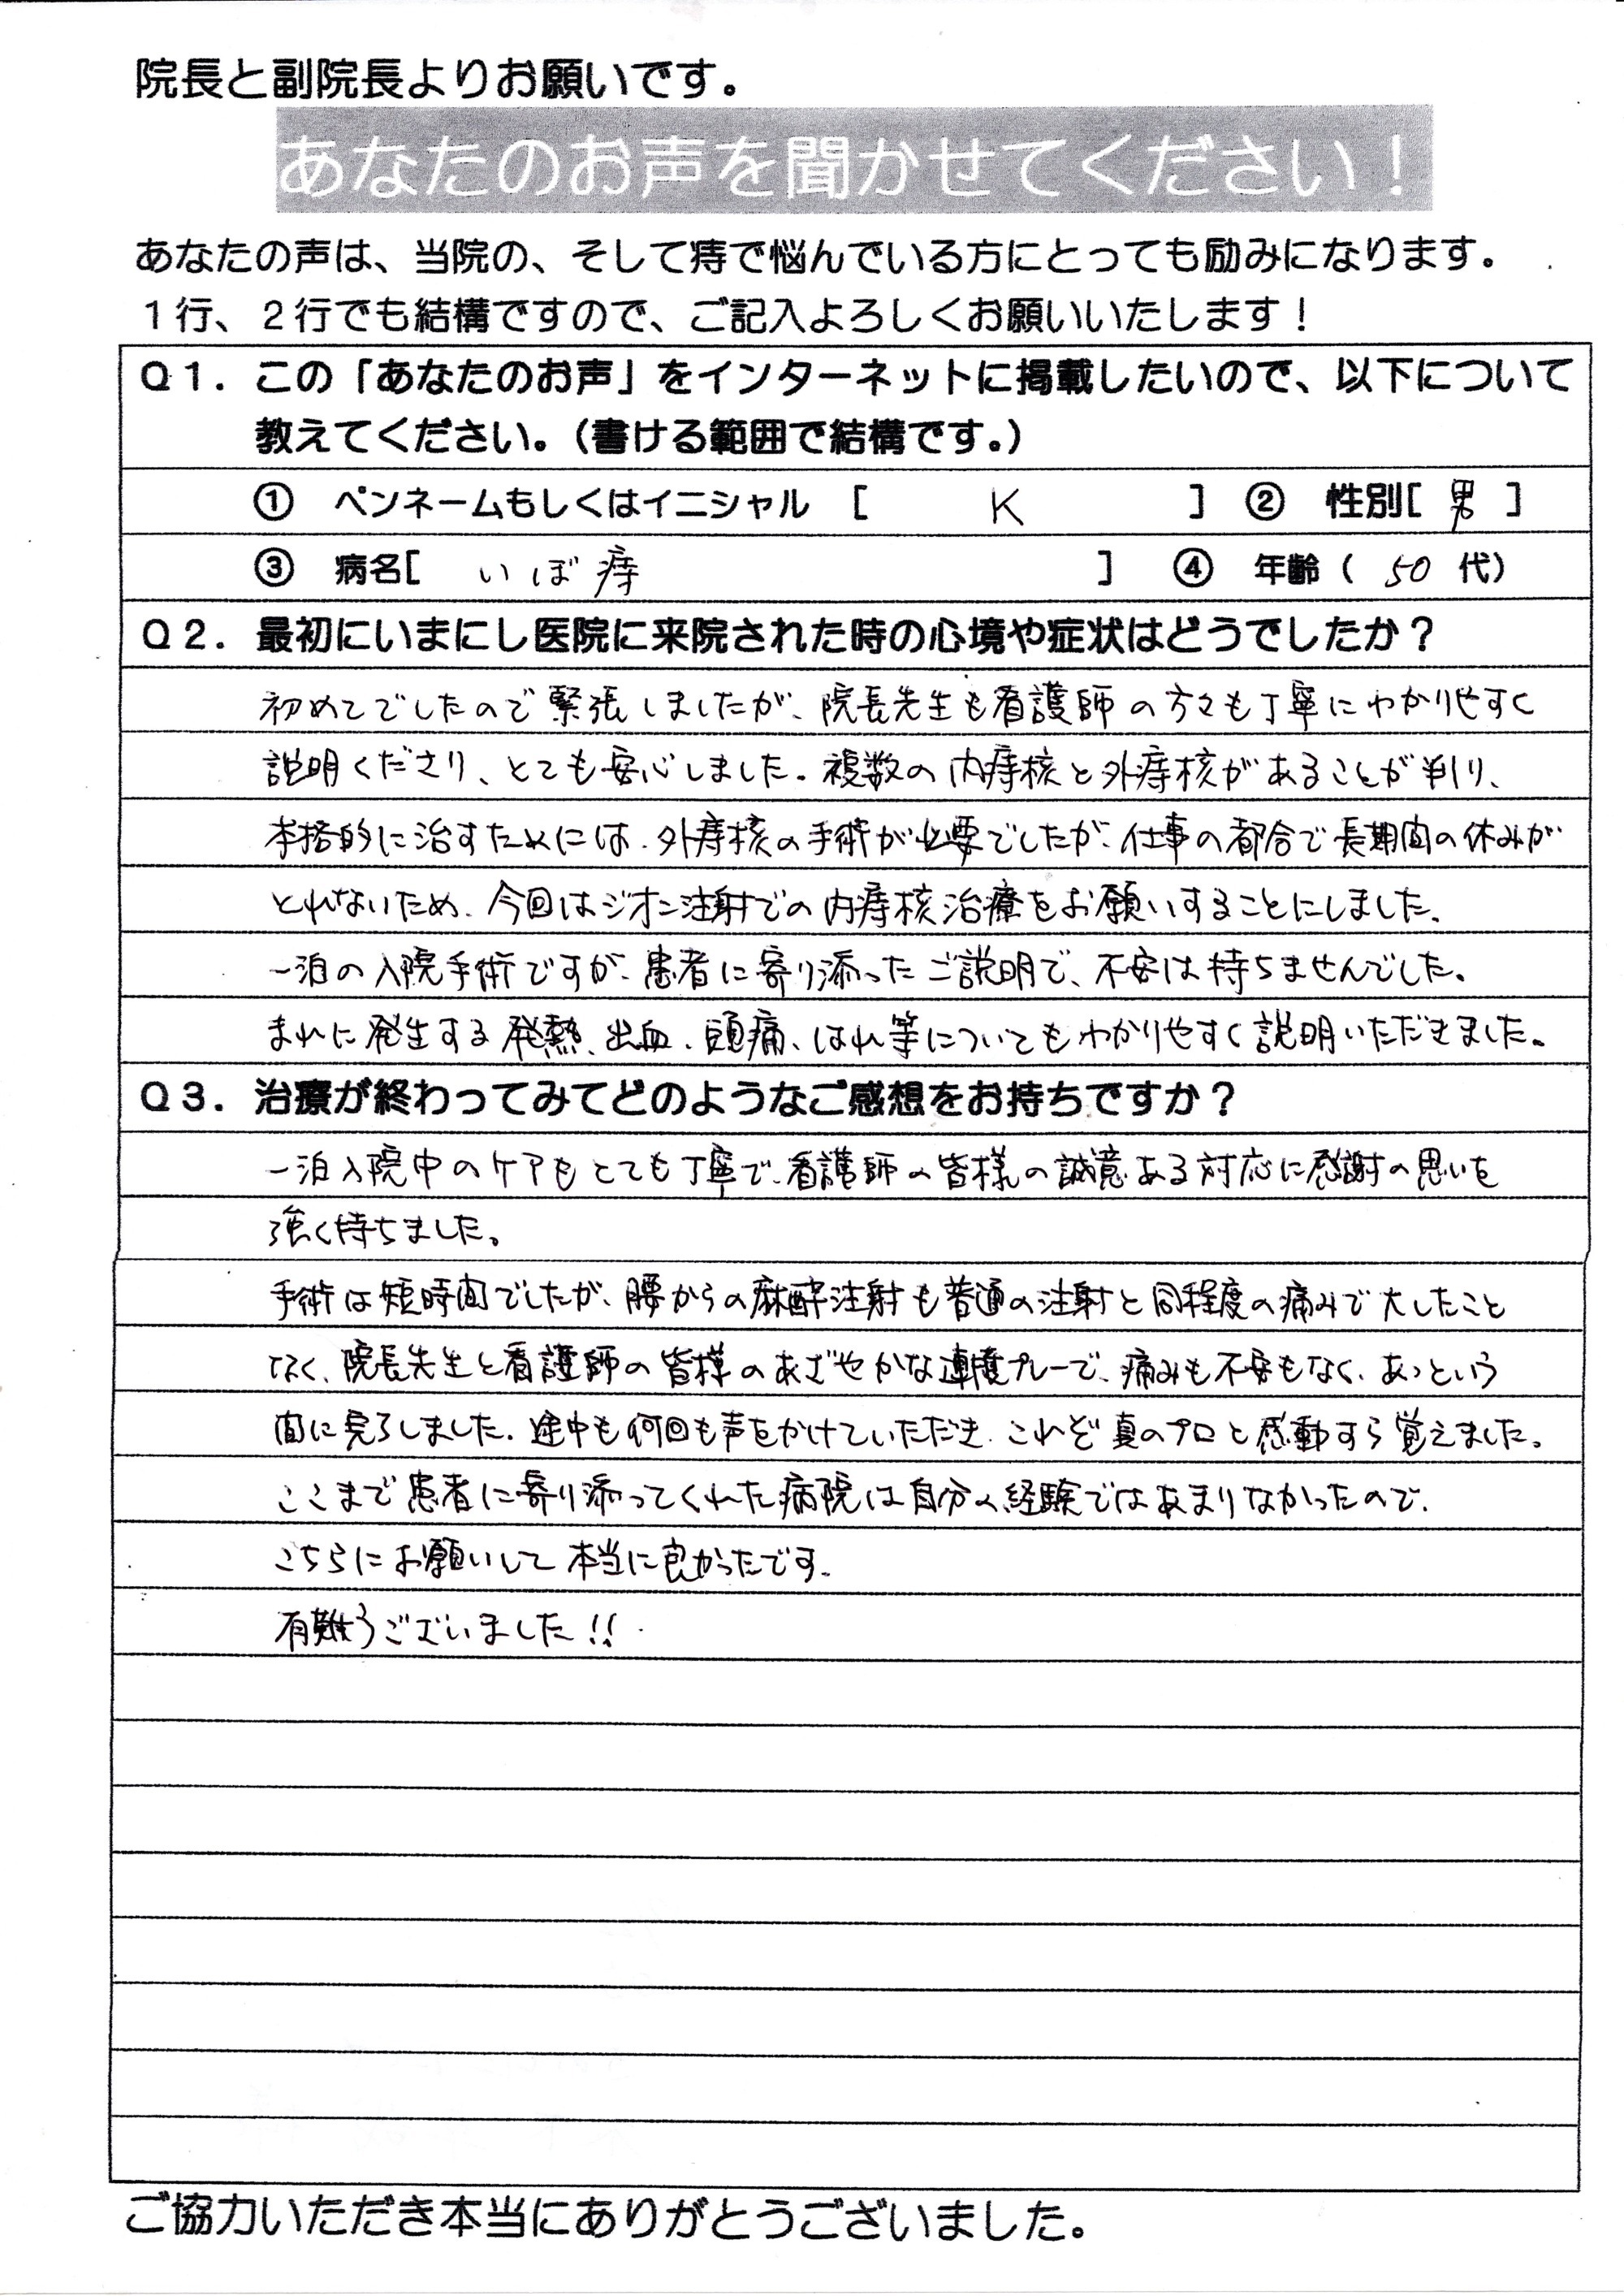 院長と副院長よりお願いです。
あなたのお声を聞かせてください！
あなたの声は、当院の、そして痔で悩んでいる方にとっても励みになります。
１行、２行でも結構ですので、ご記入よろしくお願いいたします！
Ｑ１．この「あなたのお声」をインターネットに掲載したいので、以下について
教えてください。（書ける範囲で結構です。）
① ペンネームもしくはイニシャル [ K ] ② 性別[ 男 ]
③ 病名[ いぼ痔 ] ④ 年齢（ 50 代）
Ｑ２．最初にいまにし医院に来院された時の心境や症状はどうでしたか？
初めてでしたので緊張しましたが、院長先生も看護師の方々も丁寧にわかりやすく
説明くださり、とても安心しました。複数の内痔核と外痔核があることが判り、
本格的に治すためには、外痔核の手術が必要でしたが、仕事の都合で長期間の休みが
とれないため、今回はジオン注射での内痔核治療をお願いすることにしました。
一泊の入院手術ですが、患者に寄り添ったご説明で、不安は持ちませんでした。
まれに発生する発熱、出血、頭痛、はれ等についてもわかりやすく説明いただきました。
Ｑ３．治療が終わってみてどのようなご感想をお持ちですか？
一泊入院中のケアもとても丁寧で、看護師の皆様の誠意ある対応に感謝の思いを
強く持ちました。
手術は短時間でしたが、腰からの麻酔注射も普通の注射と同程度の痛みで大したこと
なく、院長先生と看護師の皆様のあざやかな連携プレーで、痛みも不安もなく、あっという
間に完了しました。途中も何回も声をかけていただき、これぞ真のプロと感動すら覚えました。
ここまで患者に寄り添ってくれた病院は自分の経験ではあまりなかったので、
こちらにお願いして本当に良かったです。
有難うございました!!
ご協力いただき本当にありがとうございました。